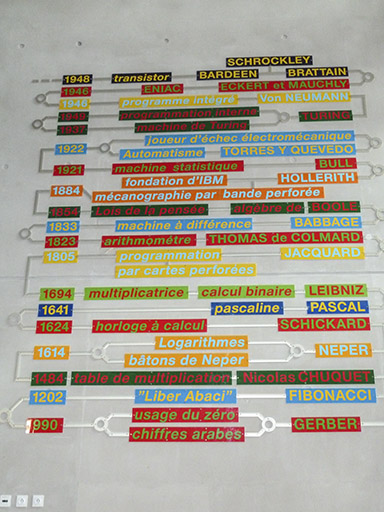 SCHROCKLEY
1948 transistor BARDEEN BRATTAIN
1946 ENIAC ECKERT et MAUCHLY
1946 programme intégré Von NEUMANN
programmation interne
1937 machine de Turing TURING
joueur d'échec électromécanique
1922 Automatisme TORRES Y QUEVEDO
1921 machine statistique BULL
fondation d'IBM HOLLERITH
1884 mécanographie par bande perforée
1854 Lois de la pensée algèbre de BOOLE
1833 machine à différence BABBAGE
1823 arithmomètre THOMAS de COLMARD
1805 programmation JACQUARD
par cartes perforées
1694 multiplicatrice calcul binaire LEIBNIZ
1641 pascaline PASCAL
1624 horloge à calcul SCHICKARD
Logarithmes
1614 bâtons de Neper NEPER
1484 table de multiplication Nicolas CHUQUET
1202 "Liber Abaci" FIBONACCI
usage du zéro
990 chiffres arabes GERBER